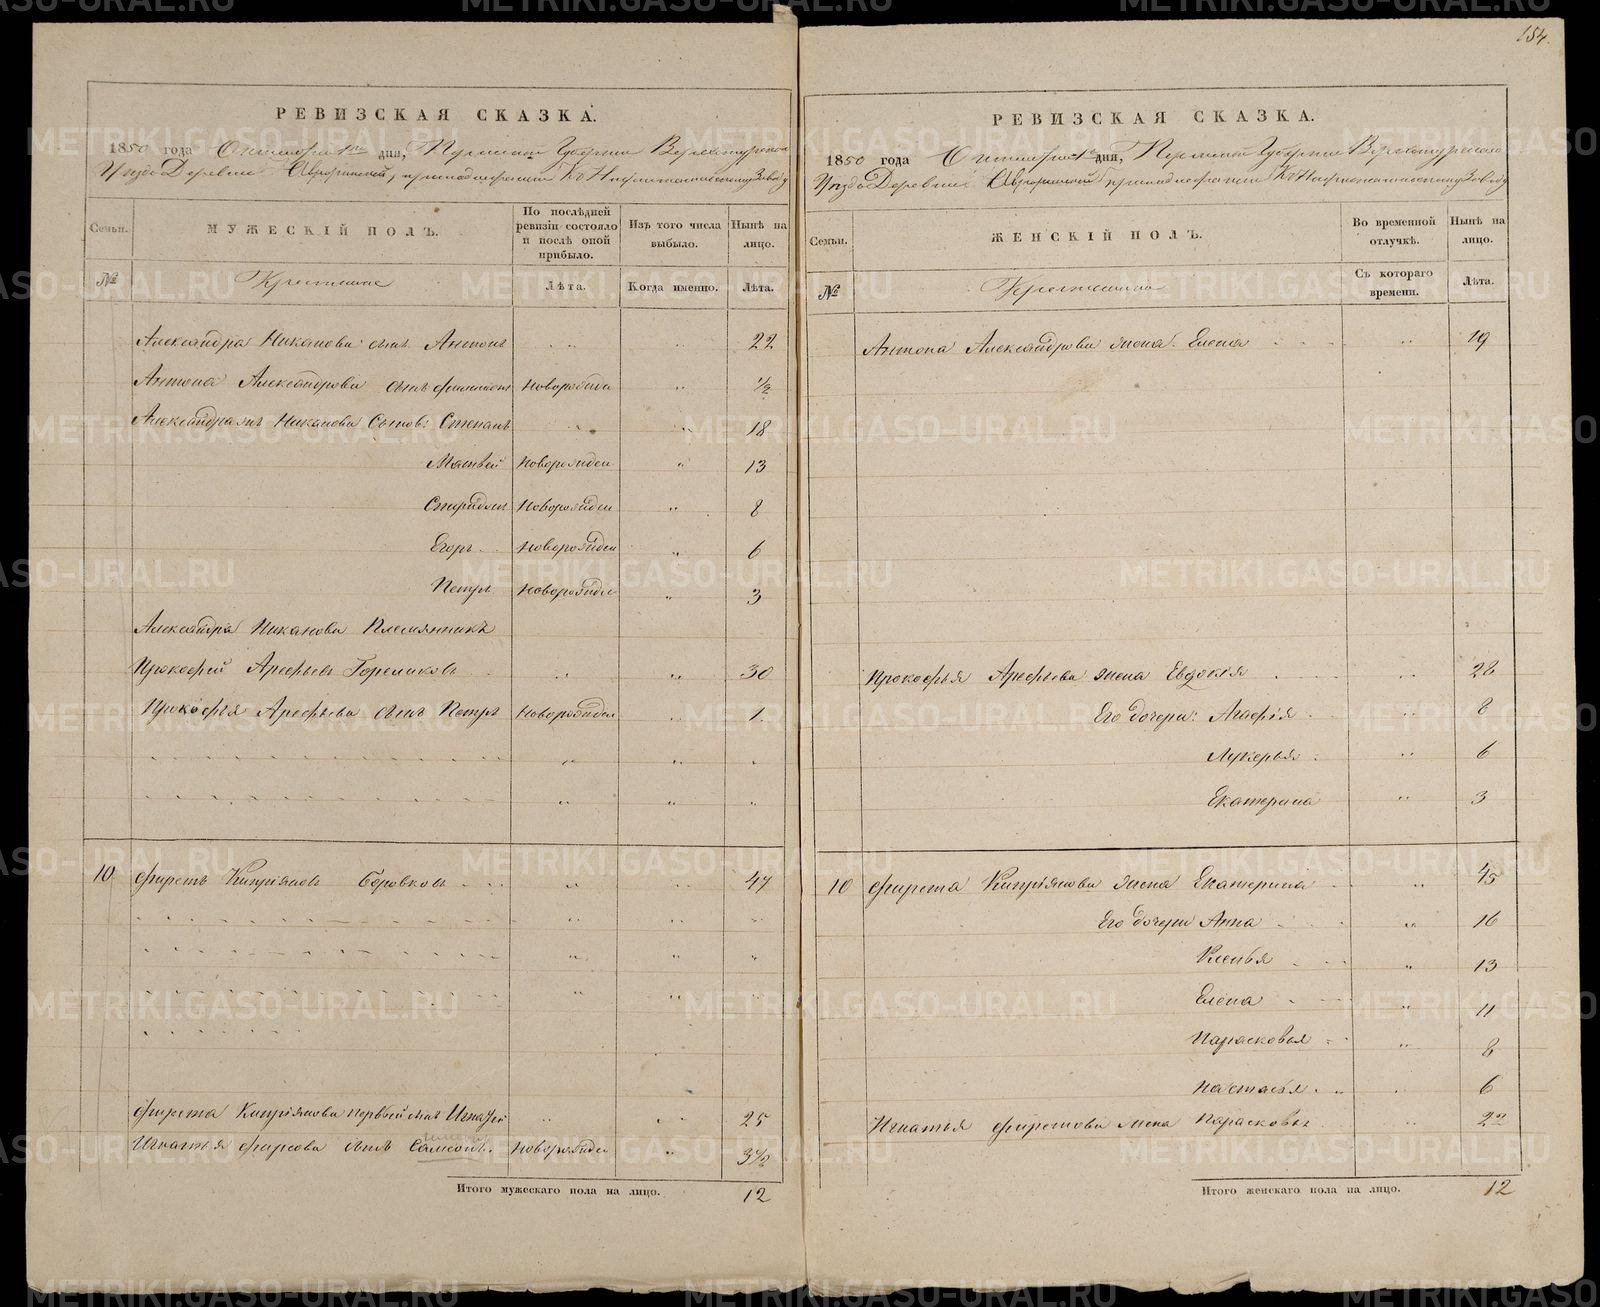 154.
РЕВИЗСКАЯ СКАЗКА.
1850 года Октября 1го дня, Пермской Губернии Верхотурскаго
Уезда Деревни принадлежащей Къ Нижнетагильскому Заводу
Семьи.
МУЖЕСКІЙ ПОЛЪ.
По послѣдней ревизіи состояло и послѣ оной прибыло.
Изъ того числа выбыло.
Нынѣ на лицо.
№
Крестьяне
Лѣта.
Когда именно.
Лѣта.
Александра Никанова сынъ Антонъ 22
Антона Александрова сынъ Новорожд 1/2
Александра Никанова Сынов: Степанъ 18
Матвей Новорожден 13
Спиридонъ Новорожден 8
Егоръ Новорожден 6
Петръ Новорожден 3
Александра Никанова Племянникъ
Прокофей Арефьевъ Гореликовъ 30
Прокофья Арефьева сынъ Петръ Новорожден 1
10 Фирстъ Кипріяновъ Боровковъ 47
Фирста Кипріянова первый сынъ Игнатей 25
Игнатья Фирсова сынъ Самсонъ. Новорожден 3 1/2
Итого мужескаго пола на лицо. 12
РЕВИЗСКАЯ СКАЗКА.
1850 года Октября 1го дня, Пермской Губернии Верхотурскаго
Уезда Деревни принадлежащей Къ Нижнетагильскому Заводу
Семьи.
ЖЕНСКІЙ ПОЛЪ.
Во временной отлучкѣ.
Нынѣ на лицо.
№
Крестьянки
Съ котораго времени.
Лѣта.
Антона Александрова жена Елена 19
Прокофья Арефьева жена Евдокія 28
Его дочери: Агафія 8
Лукерья 6
Екатерина 3
10 Фирста Кипріянова жена Екатерина 45
Его дочери Анна 16
Ксенья 13
Елена 11
Парасковья 8
Настасья 6
Игнатья Фирстова жена Парасковья 22
Итого женскаго пола на лицо. 12
METRIKI.GASO-URAL.RU